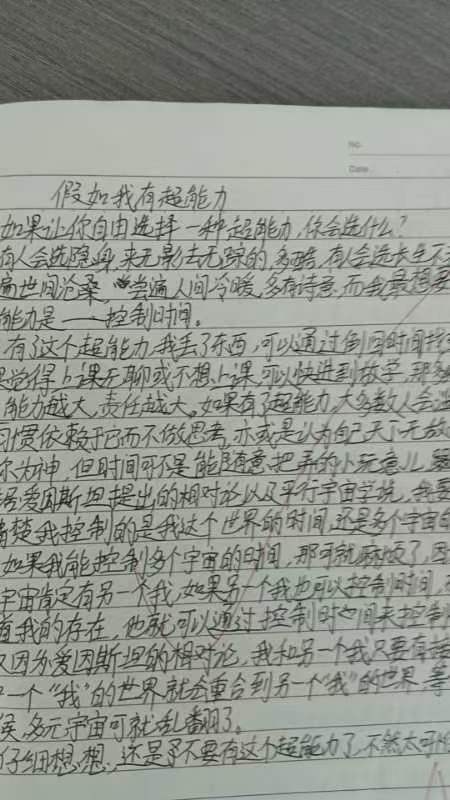 No.
Date
假如我有超能力
如果让你自由选择一种超能力,你会选什么?
有人会选隐身,来无影去无踪的,多酷,有人会选长生不
遍世间沧桑,尝遍人间冷暖,多有诗意,而我最想要
能力是——控制时间。
有了这个超能力,我丢了东西,可以通过倒回时间找
觉得上课无聊或不想上课,可以快进到放学,那多
能力越大,责任越大。如果有了超能力,大多数人会
习惯依赖于它而不做思考,亦或是认为自己天下无敌
你为神,但时间可不是能随意把弄的小玩意儿,
据爱因斯坦提出的相对论以及平行宇宙学说,我要
清楚我控制的是我这个世界的时间,还是多个宇宙的
如果我能控制多个宇宙的时间,那可就麻烦了,因
宇宙肯定有另一个我,如果另一个我也可以控制时间,
有我的存在,他就可以通过控制时间来控制
又因为爱因斯坦的相对论,我和另一个我只要有接
一个“我”的世界就会重合到另一个“我”的世界,等
候,多元宇宙可就乱翻了。
仔细想想,还是不要有这个超能力了,不然太可怕